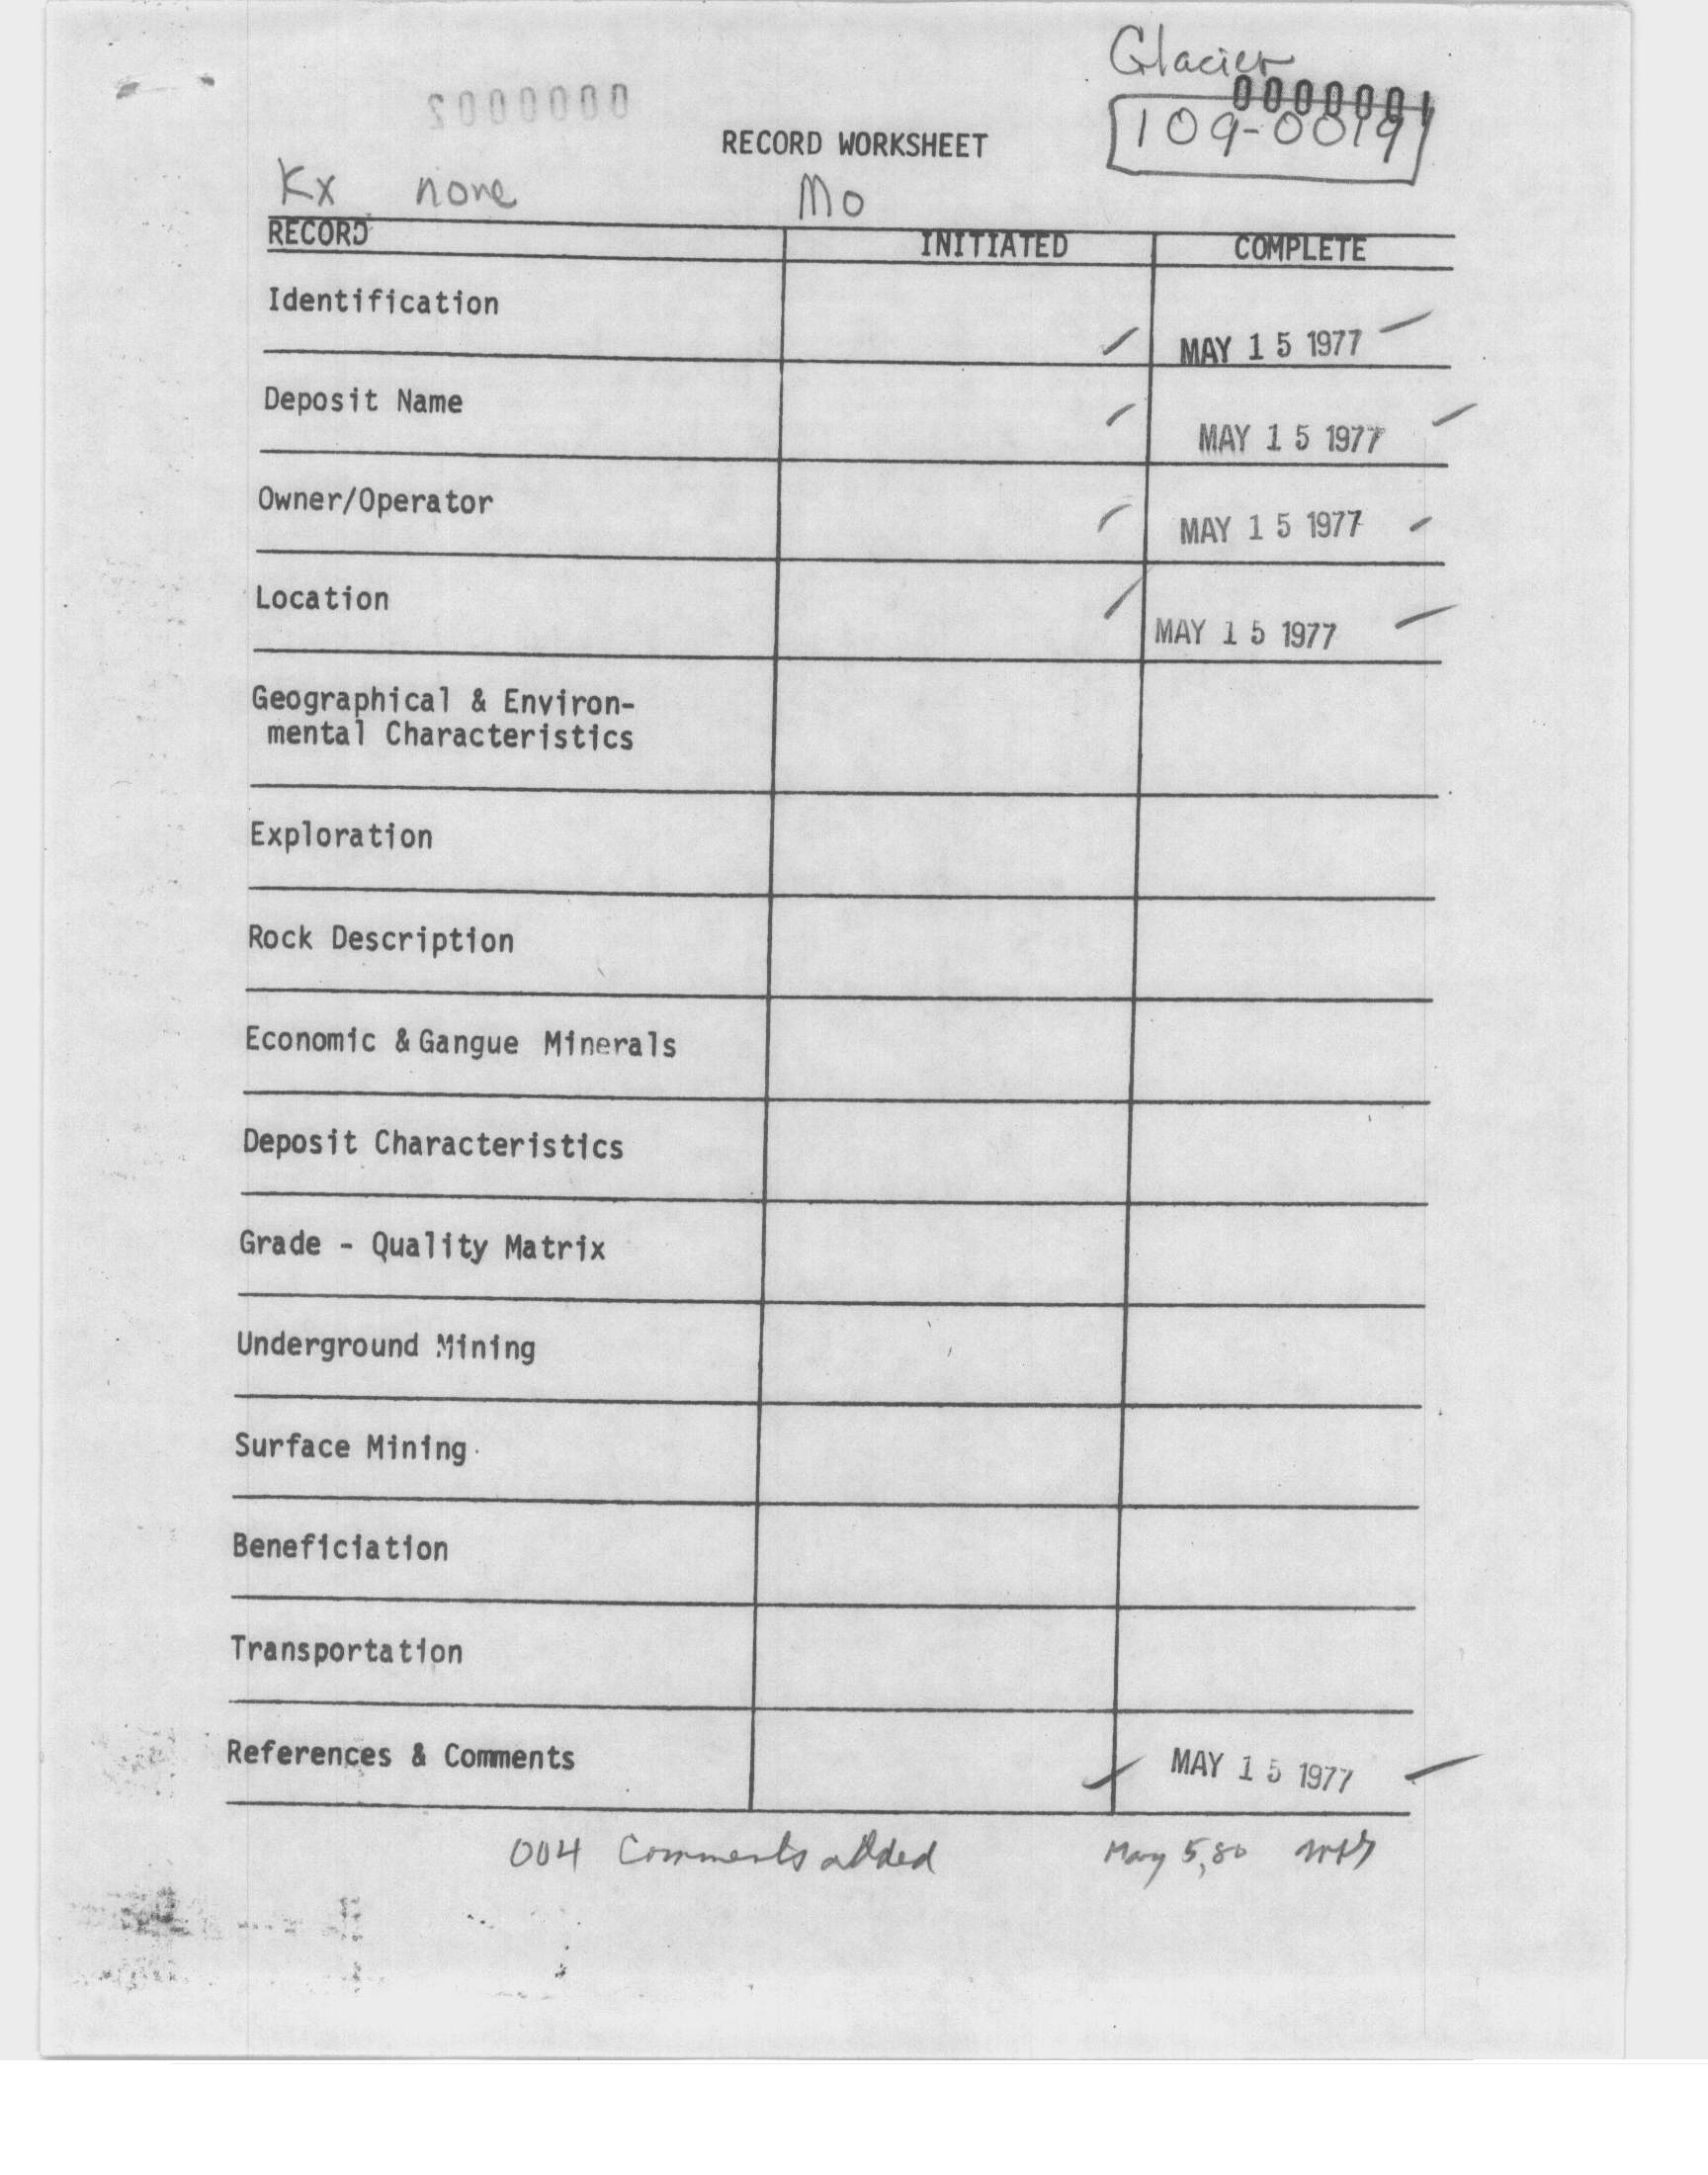 Glacier
0000001
0000002
109-0019
RECORD WORKSHEET
Kx none Mo
RECORD INITIATED COMPLETE
Identification MAY 15 1977
Deposit Name MAY 15 1977
Owner/Operator MAY 15 1977
Location MAY 15 1977
Geographical & Environ-
mental Characteristics
Exploration
Rock Description
Economic & Gangue Minerals
Deposit Characteristics
Grade - Quality Matrix
Underground Mining
Surface Mining
Beneficiation
Transportation
References & Comments MAY 15 1977
004 Comments added May 5, 80